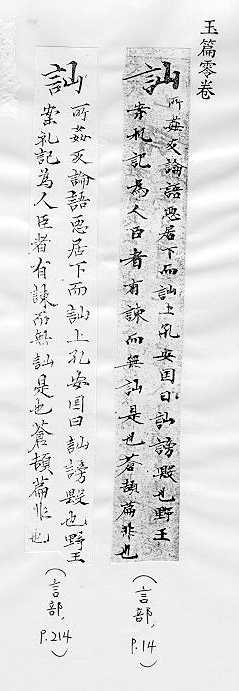 玉篇零卷
訕 所姦反論語惡居下而訕上孔安国曰訕謗毀也野王
案礼記為人臣者有諫而無訕是也蒼頡篇非也
(言部, P.14)
訕 所姦反論語惡居下而訕上孔安国曰訕謗毀也野王
案礼記為人臣者有諫而無訕是也蒼頡篇非也
(言部, P.214)